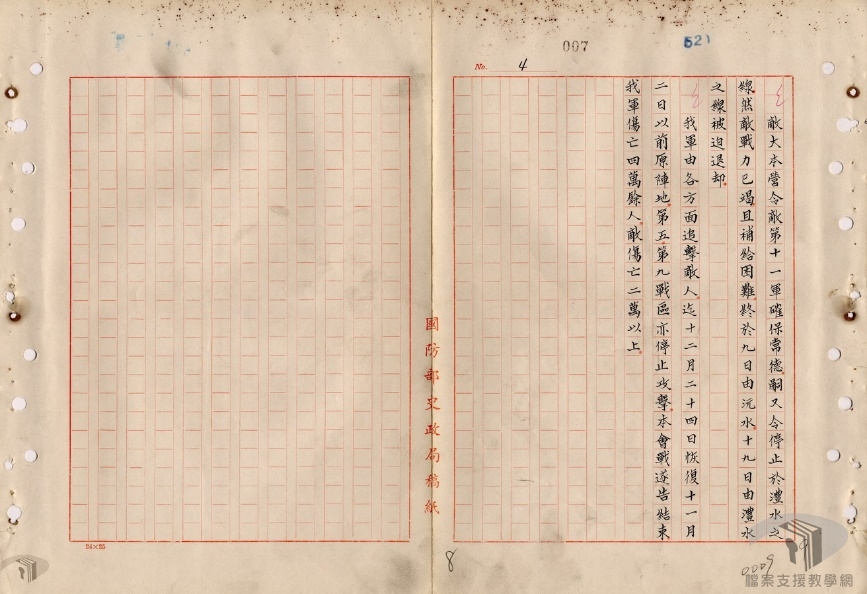 007
521
No. 4
敵大本營令敵第十一軍確保常德嗣又令停止於澧水之
線然敵戰力已竭且補給困難終於九日由沅水十九日由澧水
之線被迫退却
我軍由各方面追擊敵人迄十二月二十四日恢復十一月
二日以前原陣地第五第九戰區亦停止攻擊本會戰遂告結束
我軍傷亡四萬餘人敵傷亡二萬以上
國防部史政局稿紙
24×25
8
0009
檔案支援教學網